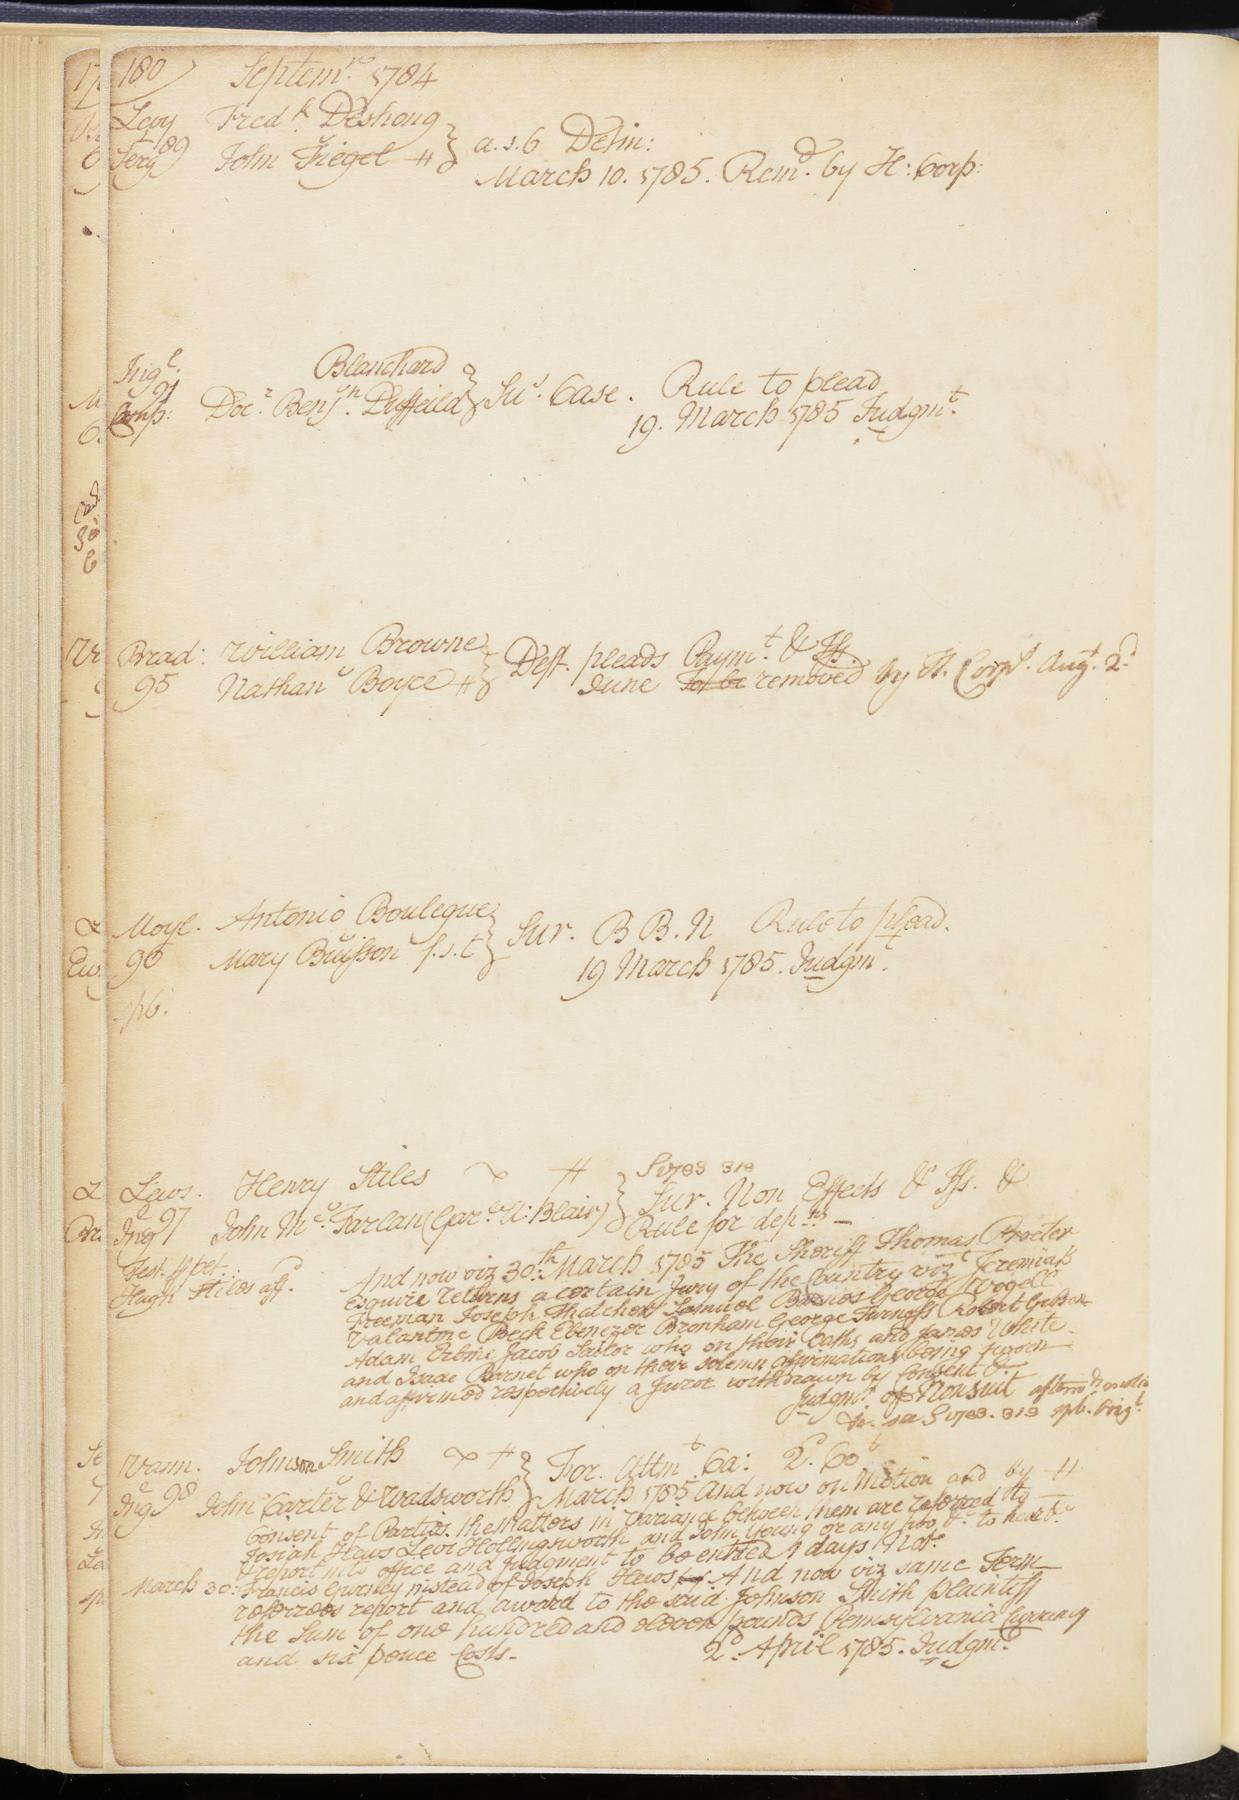 180 Septemr. 1784
Levy Fredk. Deshong
89
Ferg John Fiegel # } a.s.b Detin:
March 10. 1785. Remd. by H: Corp:
Ingl. Blanchard
91
Comp: Docr. Benjn. Duffeild } Sur. Case. Rule to plead
19. March 1785 Judgmt.
Brad: William Browne
95 Nathan Boyce # } Deft. pleads Paymt. & Iss.
June To be removed by H. Corps. Augt. 2d
Moyl. Antonio Boulegue
96 Mary Buisson f.s.t } Sur. B B. N Rule to plead.
19 March 1785. Judgmt.
spb.
Lews. Henry Stiles #
S 1783 319
97 John Mc.Farlan (Garc. W: Blair) } Sur. Non Effects & Iss. &
Rule for depns —
Hugh Stiles affd.
And now viz 30th. March 1785 The Sheriff Thomas Procter
Esquire returns a certain Jury of the Country vizt Jeremiah
Freeman Joseph Thatcher Samuel Barnes George Vogell
Valantine Beck Ebenezer Branham George Furnass Robert Gibson
Adam Erbine Jacob Sailor who on their Oaths and James White
and Isaac Barnet who on their solemn affirmations being sworn
and affirmed respectively a Juror withdrawn by Consent &
Judgmt. of Nonsuit
see S 1783. 319 spb. Origl.
Vann. Johnson Smith #
Ing. 98 John Carter & Wadsworth } For. Attmt. Ca: 2d. Cot
March 1785 And now on Motion and by
Consent of Parties the Matters in variance between them are referred to
Josiah Hews Levi Hollingsworth and John Young or any two &c. to
& report into office and Judgment to be entred 4 days Note
March 30: Francis Gurney instead of Joseph Hews And now viz same Term
referrees report and award to the said Johnson Smith plaintiff
the Sum of one hundred and eleven pounds Pennsylvania Currency
and six pence Costs. 2d. April 1785. Judgmt.